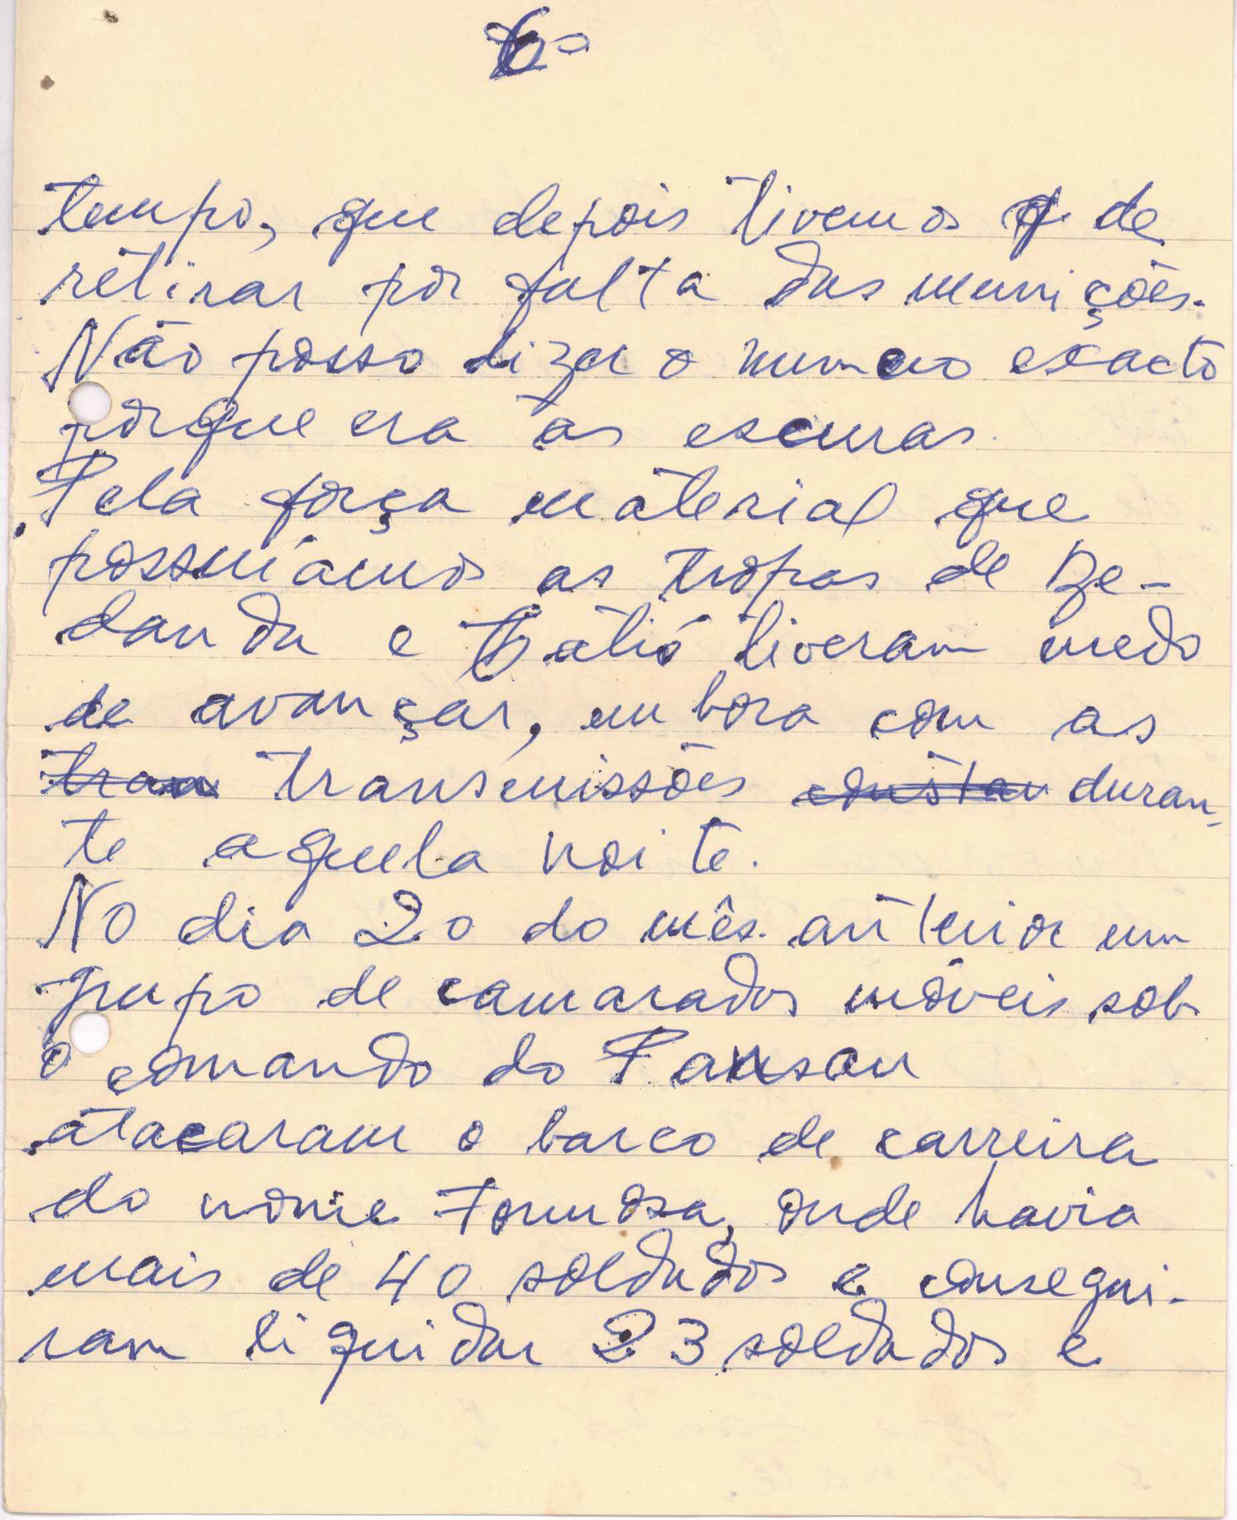 6º
tempo, que depois tivemos de
retirar por falta das munições.
Não posso dizer o numero exacto
porque era às escuras.
Pela força material que
possuíamos as tropas de Be-
danda e Catió tiveram medo
de avançar, embora com as
tran transmissões constan duran-
te aquela noite.
No dia 20 do mês anterior um
grupo de camarados móveis sob
o comando do Pansau
atacaram o barco de carreira
do nome Formosa, onde havia
mais de 40 soldados e consegui-
ram liquidar 23 soldados e